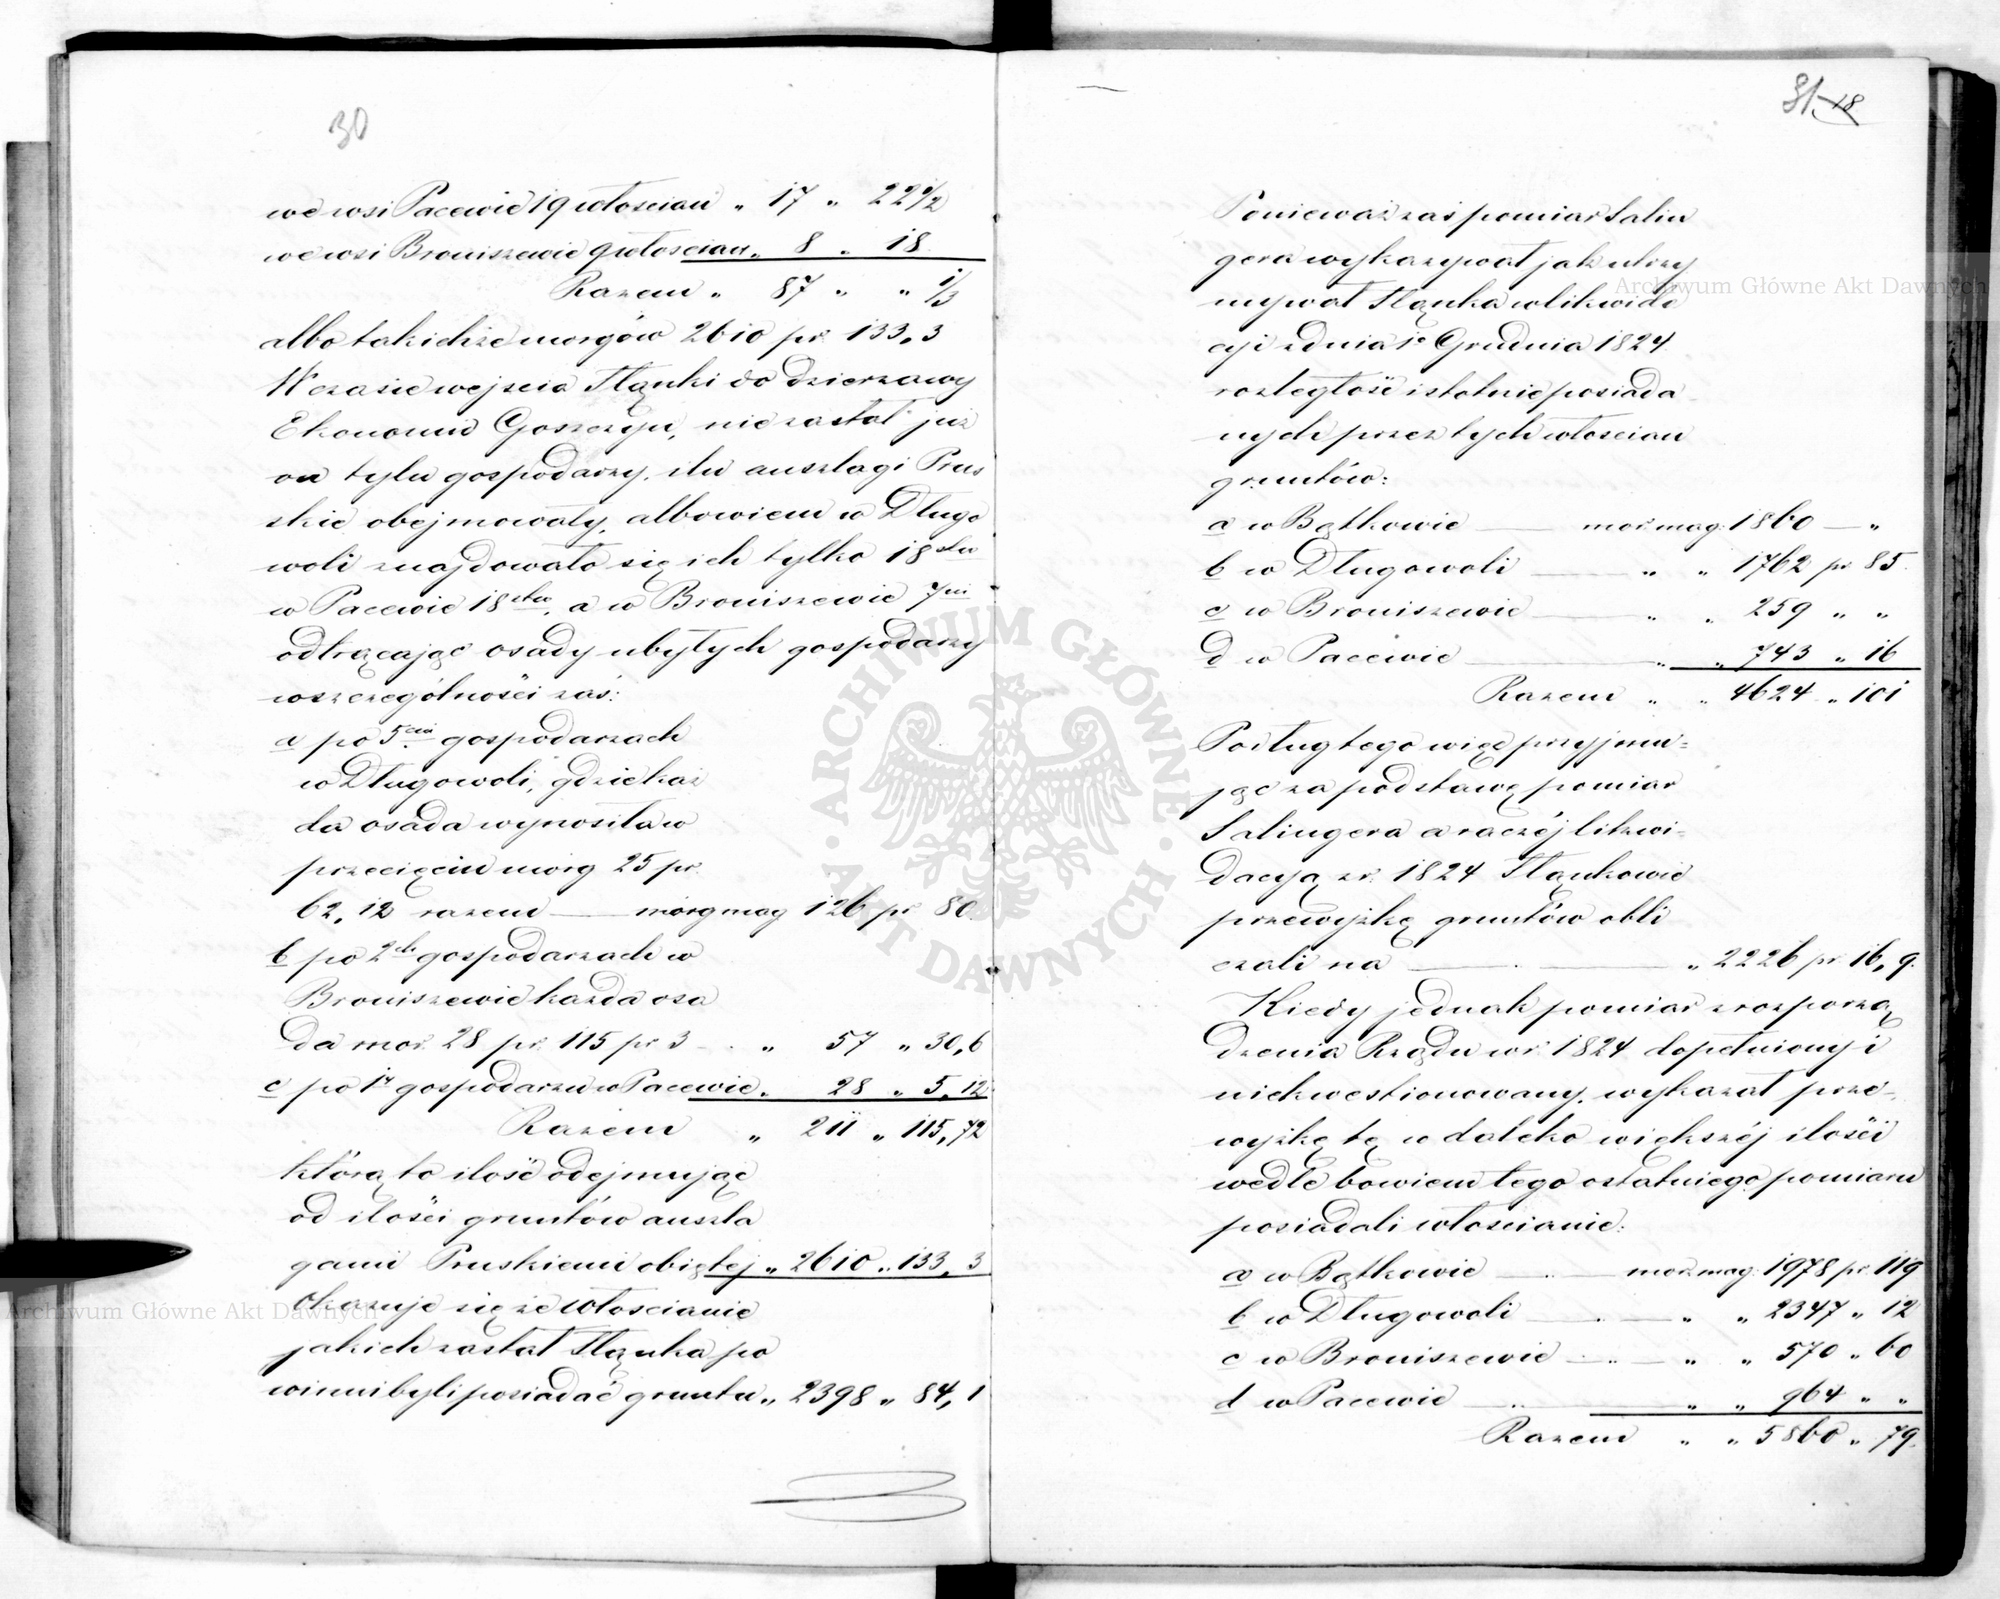 30
we wsi Pacewie 19 włościan „ 17 „ 22 1/2
we wsi Broniszewie 9 włościan „ 8 „ 18
Razem „ 87 „ „ 1/3
albo takichże morgów 2610 pr. 133,3
W czasie wejścia Fląnki do dzierzawy
Ekonomii Goszczyn, nie zastał już
on tylu gospodarzy, ilu anszlagi Prus
skie obejmowały, albowiem w Długo
woli znajdowało się ich tylko 18stu
w Pacewie 18stu, a w Broniszewie 7miu
odtrącając osady ubyłych gospodarzy
w szczególności zaś:
a po 5ciu gospodarzach
w Długowoli, gdzie każ
da osada wynosiła w
przecięciu morg 25 pr.
62,12 razem — morg mag 126 pr 80.
b po 2ch gospodarzach w
Broniszewie każda osa
da mor. 28 pr. 115 pr 3 „ 57 „ 30,6
c po 1m gospodarzu w Pacewie „ 28 „ 5,12
Razem „ 211 „ 115,72
którą to ilość odejmując
od ilości gruntów anszla
gami Pruskiemi objętej „ 2610 „ 133,3
Okazuje się że włościanie
jakich zastał Fląnka po
winni byli posiadać gruntu „ 2398 „ 84,1
31 18
Ponieważ zaś pomiar Salin
gera wykazywał jak utrzy
mywał Fląnka w likwida
cyi z dnia 1o Grudnia 1824
rozległość istotnie posiada
nych przez tych włościan
gruntów:
a w Bątkowie — mor. mag. 1860 — „
b w Długowoli — „ „ 1762 pr 85.
c w Broniszewie — „ „ 259 „ „
d w Pacewie — „ „ 743 „ 16
Razem „ „ 4624 „ 101
Podług tego więc przyjmu=
jąc za podstawę pomiar
Salingera a raczéj likwi=
dacyą z r. 1824 Fląnkowie
przewyżkę gruntów obli
czali na — „ 2226 pr. 16,9.
Kiedy jednak pomiar z rozporzą
dzenia Rządu w r. 1824 dopełniony i
niekwestionowany, wykazał prze-
wyżkę tę w daleko większéj ilości
wedle bowiem tego ostatniego pomiaru
posiadali włościanie:
a w Bątkowie — mor. mag. 1978 pr. 119
b w Długowoli — „ „ 2347 „ 12
c w Broniszewie — „ „ 570 „ 60
d w Pacewie — „ „ 964 „ „
Razem „ „ 5860 „ 79.
Archiwum Główne Akt Dawnych
Archiwum Główne Akt Dawnych
· ARCHIWUM GŁÓWNE · AKT DAWNYCH ·